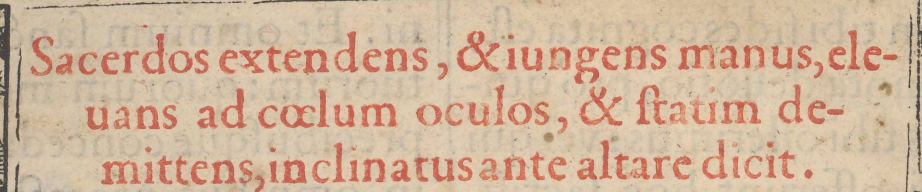 Sacerdos extendens, & iungens manus, ele-
uans ad cœlum oculos, & ſtatim de-
mittens, inclinatus ante altare dicit.